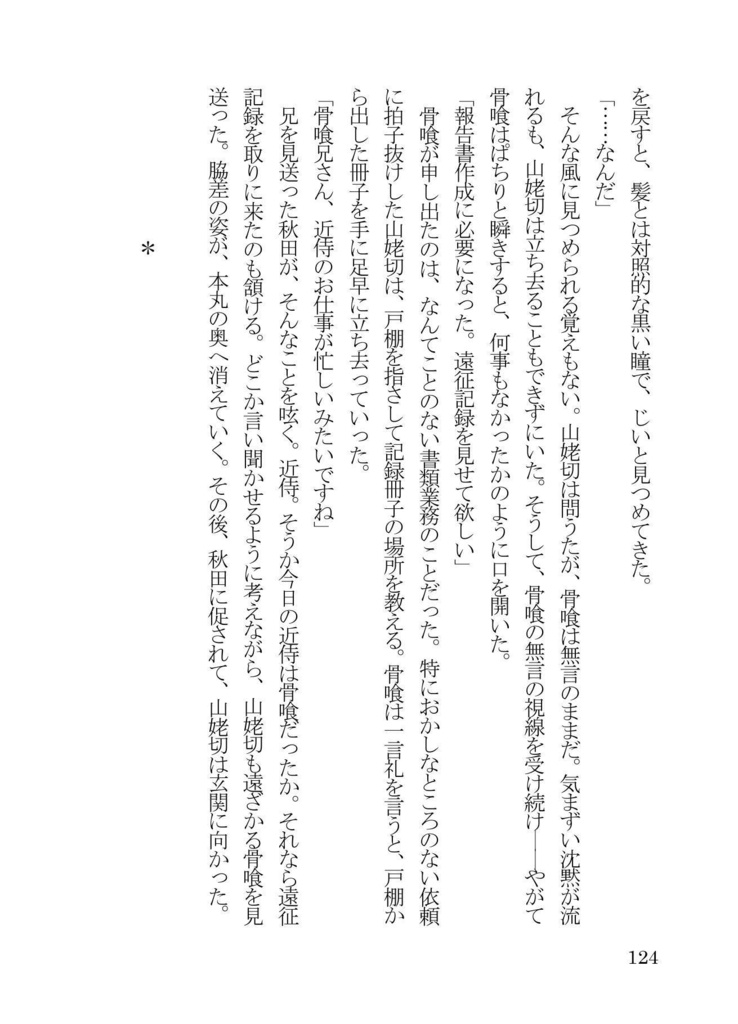 を戻すと、髪とは対照的な黒い瞳で、じいと見つめてきた。
「……なんだ」
そんな風に見つめられる覚えもない。山姥切は問うたが、骨喰は無言のままだ。気まずい沈黙が流
れるも、山姥切は立ち去ることもできずにいた。そうして、骨喰の無言の視線を受け続け――やがて
骨喰はぱちりと瞬きすると、何事もなかったかのように口を開いた。
「報告書作成に必要になった。遠征記録を見せて欲しい」
骨喰が申し出たのは、なんてことのない書類業務のことだった。特におかしなところのない依頼
に拍子抜けした山姥切は、戸棚を指さして記録冊子の場所を教える。骨喰は一言礼を言うと、戸棚か
ら出した冊子を手に足早に立ち去っていった。
「骨喰兄さん、近侍のお仕事が忙しいみたいですね」
兄を見送った秋田が、そんなことを呟く。近侍。そうか今日の近侍は骨喰だったか。それなら遠征
記録を取りに来たのも頷ける。どこか言い聞かせるように考えながら、山姥切も遠ざかる骨喰を見
送った。脇差の姿が、本丸の奥へ消えていく。その後、秋田に促されて、山姥切は玄関に向かった。
＊
124